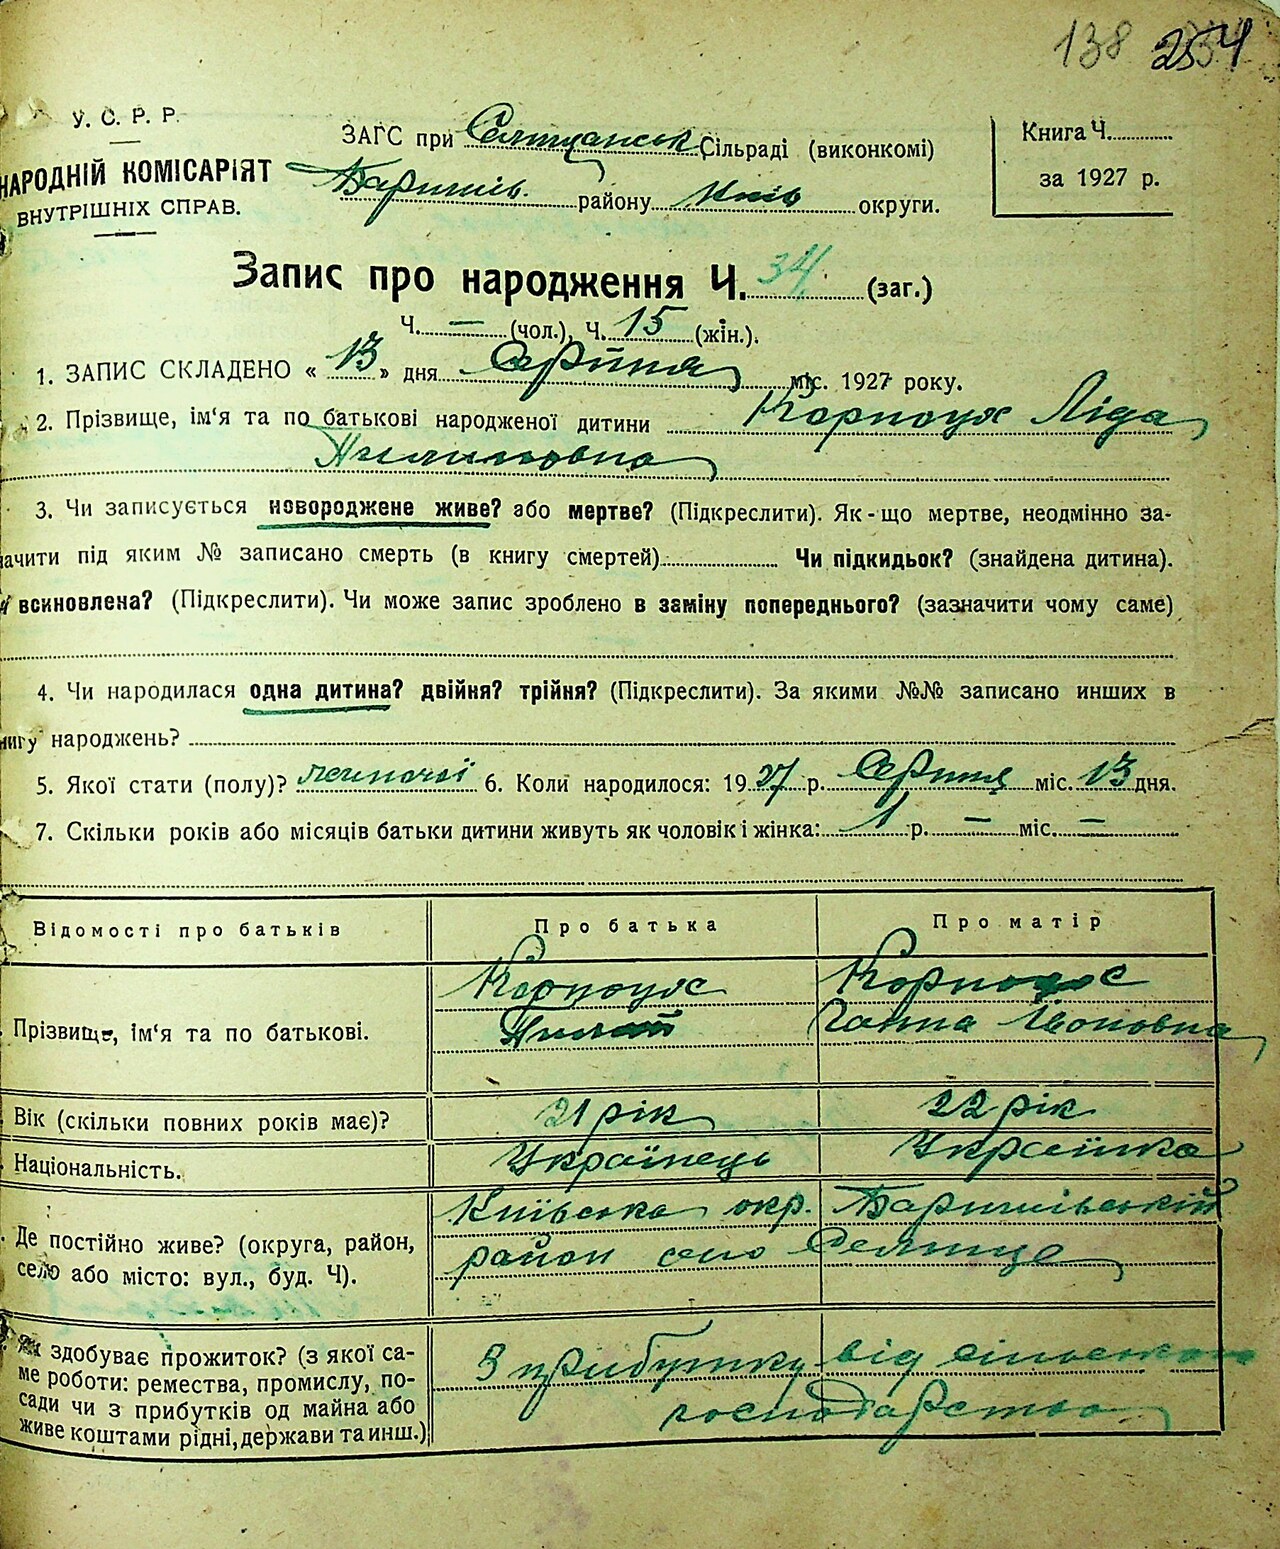 138 254
У. С. Р. Р.
НАРОДНІЙ КОМІСАРІЯТ
ВНУТРІШНІХ СПРАВ.
ЗАГС при Селищанськ Сільраді (виконкомі)
Баришів. району Київ округи.
Книга Ч.
за 1927 р.
Запис про народження Ч. 34 (заг.)
Ч. — (чол.), Ч. 15 (жін.).
1. ЗАПИС СКЛАДЕНО « 13 » дня Серпня міс. 1927 року.
2. Прізвище, ім‘я та по батькові народженої дитини Корпоух Ліда
Пилиповна
3. Чи записується новороджене живе? або мертве? (Підкреслити). Як-що мертве, неодмінно за-
ачити під яким № записано смерть (в книгу смертей) Чи підкидьок? (знайдена дитина).
всиновлена? (Підкреслити). Чи може запис зроблено в заміну попереднього? (зазначити чому саме)
4. Чи народилася одна дитина? двійня? трійня? (Підкреслити). За якими №№ записано инших в
нигу народжень?
5. Якої стати (полу)? жіночої 6. Коли народилося: 1927 р. Серпня міс. 13 дня.
7. Скільки років або місяців батьки дитини живуть як чоловік і жінка: 1 р. — міс. —
Відомості про батьків Про батька Про матір
Прізвище, ім‘я та по батькові.
Корпоух Корпоух
Пилип Ганна Івановна
Вік (скільки повних років має)? 21 рік 22 рік
Національність. Українець Українка
Де постійно живе? (округа, район,
село або місто: вул., буд. Ч).
Київська окр. Баришівський
район село Селище
Як здобуває прожиток? (з якої са-
ме роботи: ремества, промислу, по-
сади чи з прибутків од майна або
живе коштами рідні, держави та инш.)
З прибутку від сільського
господарства